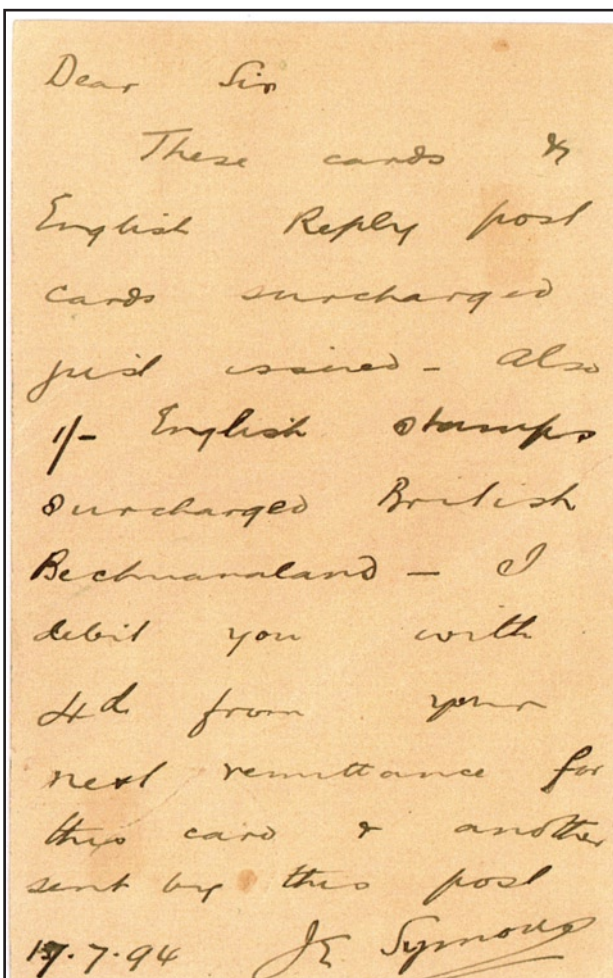 Dear Sir
These cards &
English Reply post
cards surcharged
just issued - Also
1/- English stamps
surcharged British
Bechuanaland - I
debit you with
4d from your
next remittance for
this card & another
sent by this post
17.7.94 J.E. Symons